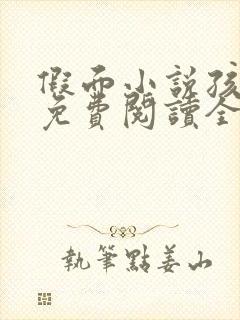 假面小説孩
免費閱讀全
執筆點姜山